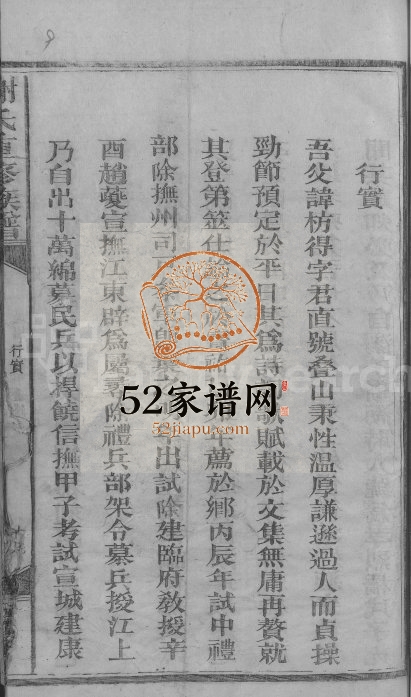 行實
吾父諱枋得字君直號叠山秉性温厚謙遜過人而貞操
勁節預定於平日其爲詩歌賦載於文集無庸再贅就
其登第筮仕薦於鄉丙辰年試中禮
部除撫州司出試除建臨府教授辛
酉趙葵宣撫江東辟爲屬禮兵部架令募兵授江上
乃自出十萬綿募民兵以捍饒信撫甲子考試宣城建康
謝氏重修族譜
行實
52家谱网
52jiapu.com